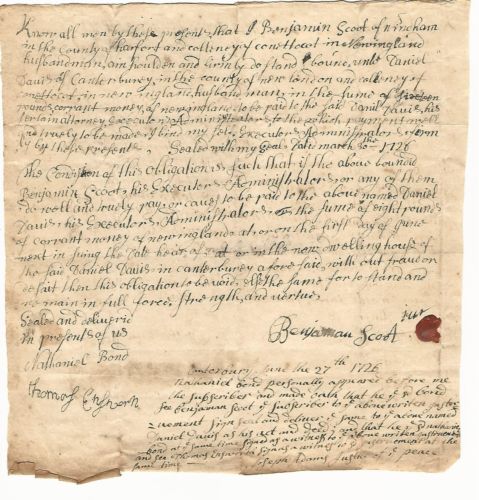 Know all men by these presents that I Benjamin Scoot of
in the County of harfort and collency of conettocot in Newingland
husbandman, am houlden and firmly do stand bound, unto Daniel
Davis of Canterburey, in the county of new london and collency of
conettocot in newingland, husbandman, in the sume of sixteen
pounds, corrant money of newingland to be paid to the said Daniel Davis, his
certain attorney Executers Administrators to the which payment well
and truely to be made, I bind my self, Executers Administrators, firmly
by these presents. Sealed with my Seal Dated march 30th 1726
The Condition of this obligation is such that if the above bounded
Benjamin Scoot, his Executers Administrators, or any of them
do well and truely pay, or caus to be paid to the above named Daniel
Davis, his Executors, Administrators, the sume of eight pounds
of corrant money of newingland at or on the first day of June
next in suing the date hearof at or in the now dwelling house of
the said Daniel Davis in canterburey afore said, with out fraud or
defait then this obligation to be void, else the same for to stand and
re main in full force, strength, and vertue,
Sealed and deliverid
in presents of us
Nathaniel Bond
Thomas Ensworth
Benjaman Scoot
Canterbury June the 27th 1726
Nathaniel Bond personally appeared before me
the subscriber and made oath that he
see benjaman Scoot subscriber to above writen
signe seal and deliver same to above named
Daniel Davis as his act and deed and that he
bond at same time signed as a witness to above writen
and see Thomas Ensworth signe as a witness to at the
same time
Joseph Adams Justice of peace